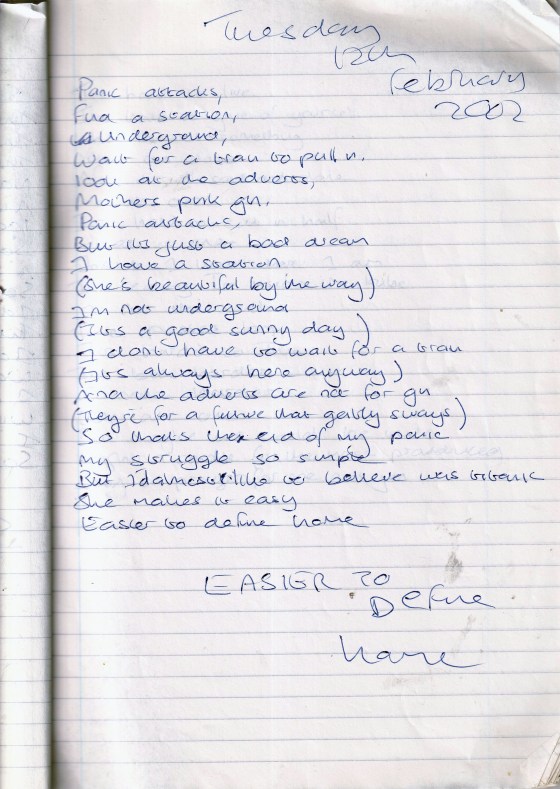 Tuesday
12th
February
2002
Panic attacks,
Find a station,
Underground,
Wait for a train to pull in.
look at the adverts,
Mothers pink gin.
Panic attacks,
But its just a bad dream
I have a station
(She's beautiful by the way)
I'm not underground
(Its a good sunny day)
I dont have to wait for a train
(Its always here anyway)
And the adverts are not for gin
(They're for a future that gently sways)
So thats the end of my panic
My struggle so simple
But I'd like to believe was titanic
She makes it easy
Easier to define home
EASIER TO
Define
home